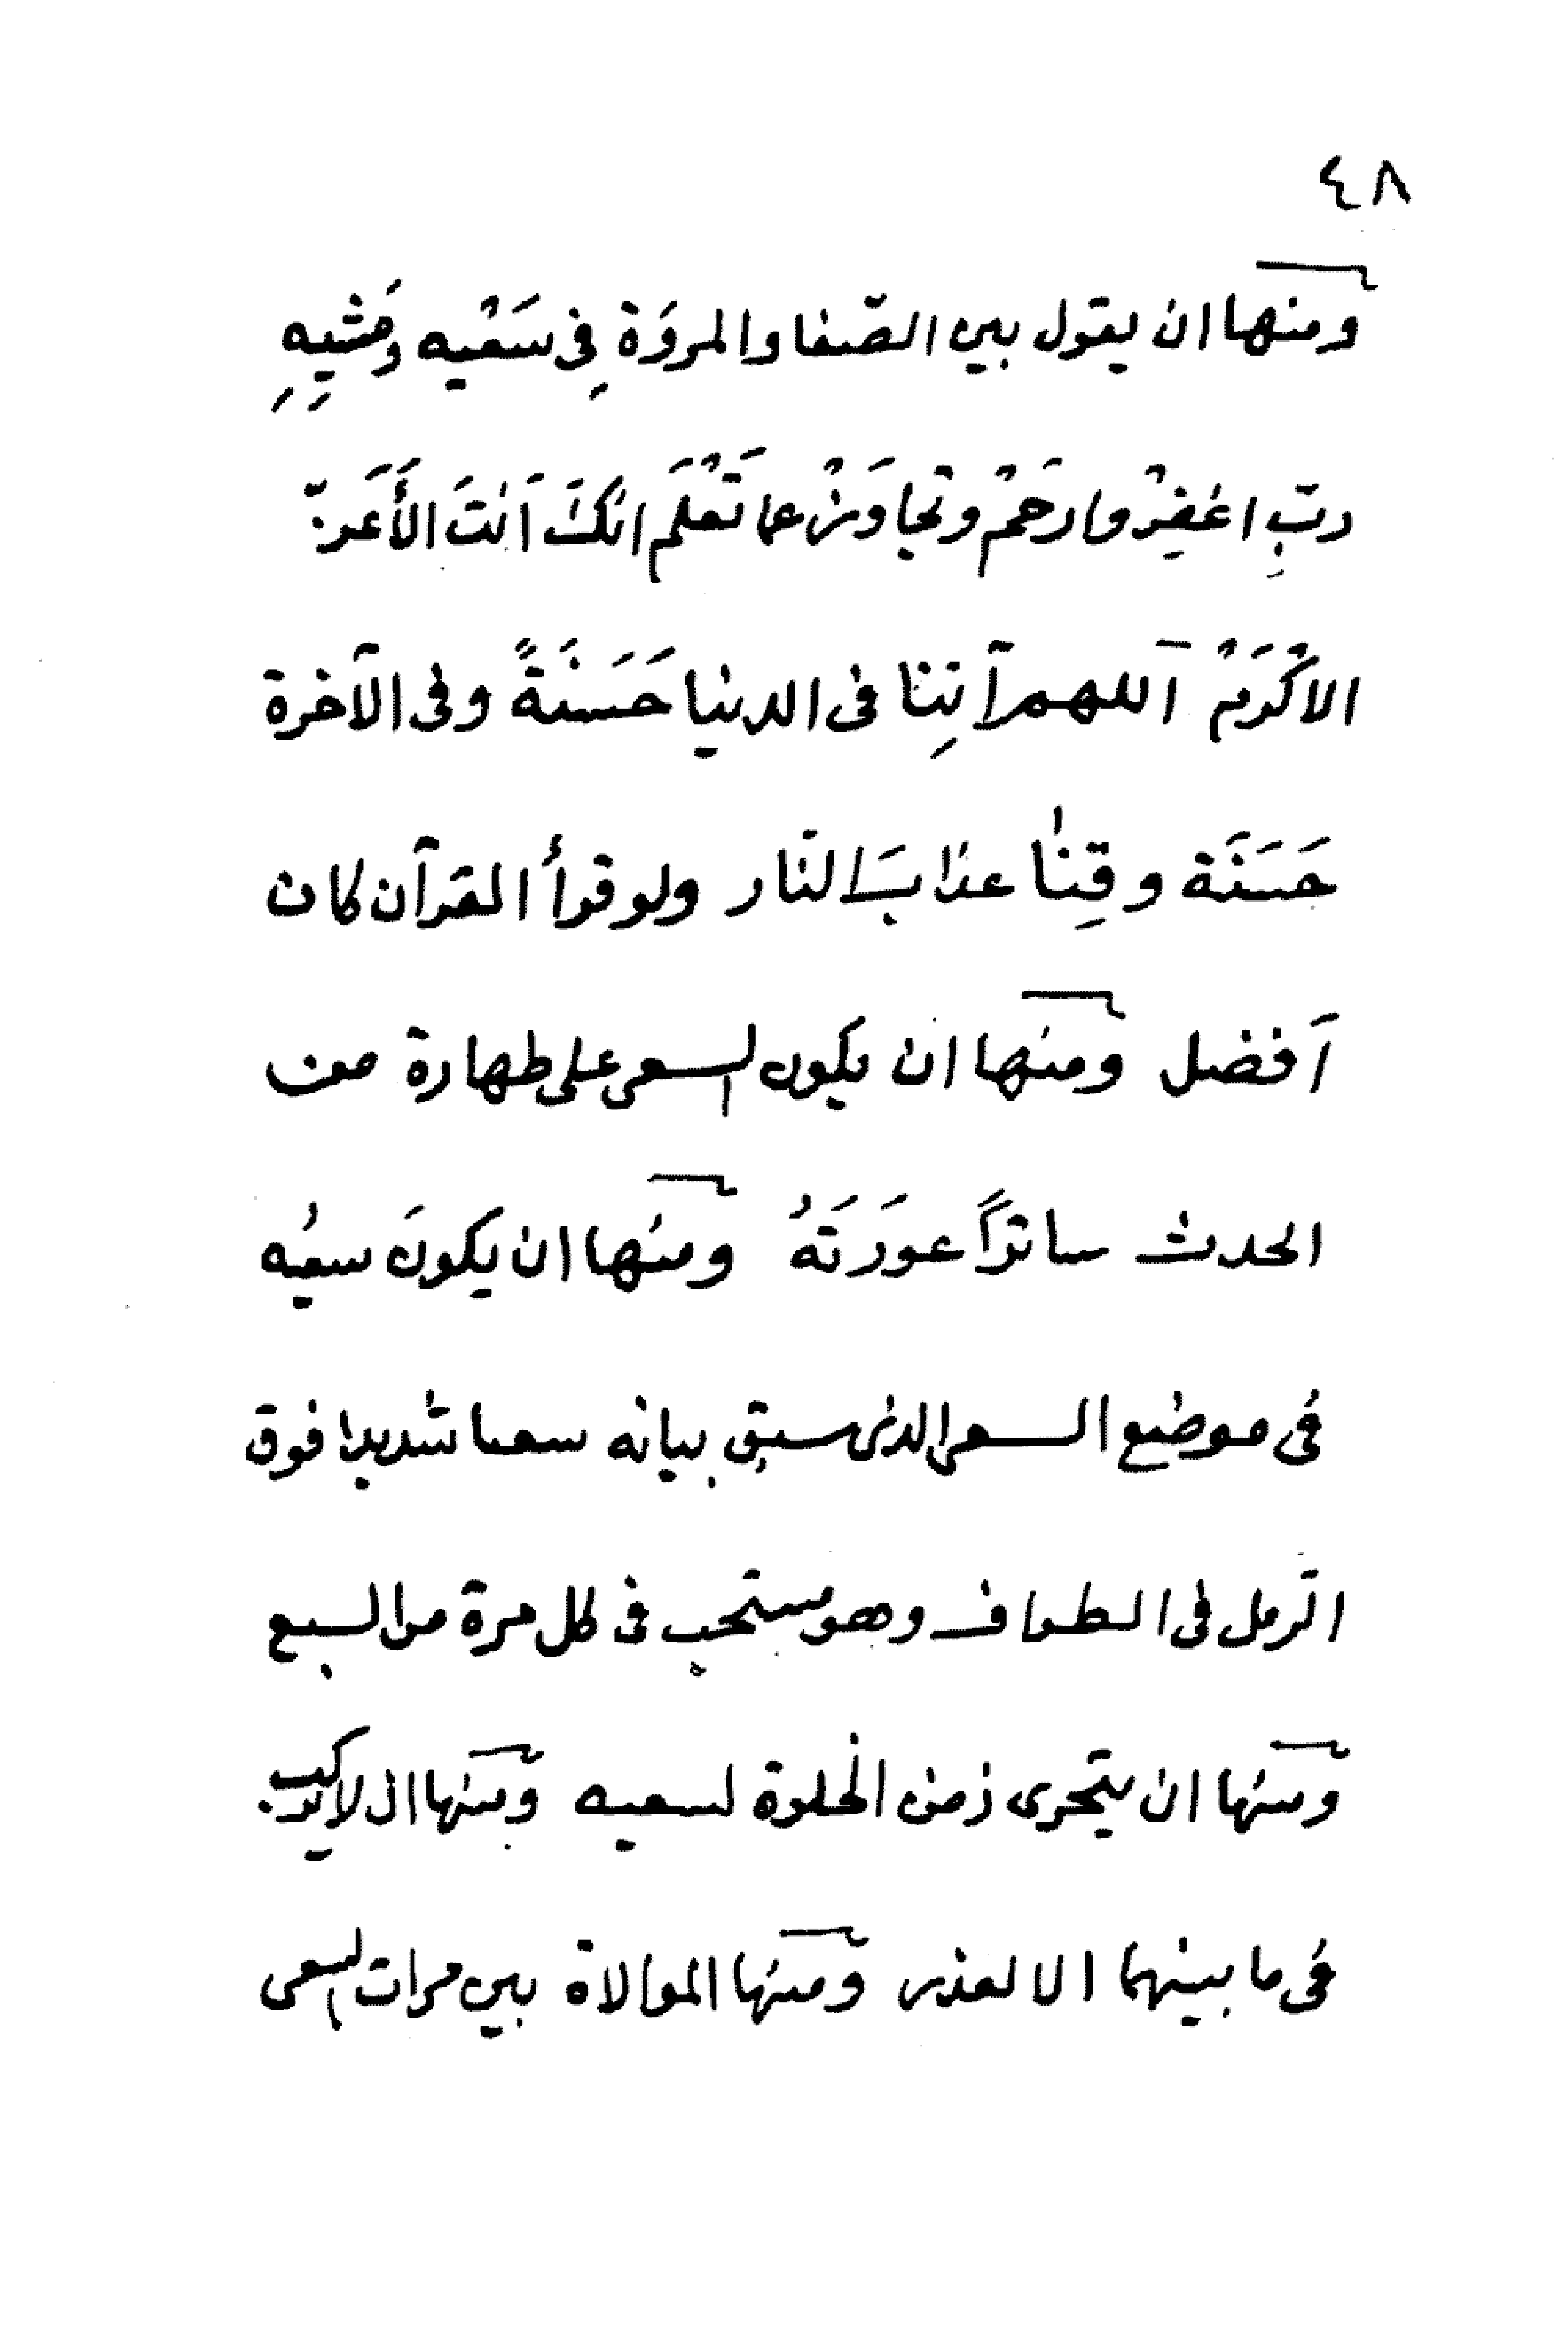 ٤٨
ومنها ان يقول بين الصّفا والمروَة فِى سَعْيه وَمَشيِهِ
ربّ اغفِرْ وارحَمْ وتجاوَزْ عما تَعْلَم انكَ اَنتَ الأَعَزّ
الاكْرَمْ اَللهم آتِنا فى الدنيا حَسَنَةً وفى الآخرة
حَسَنَة وقِنا عذابَ النّار ولو قرأ القرآن كان
اَفضل ومنها ان يكون السعى على طهارة من
الحدث ساتراً عورَتَهُ ومنها ان يكونَ سعيُه
فى موضع السعى الذى سبق بيانه سعيا شديدا فوق
الرّمل فى الطواف وهو مستحب فى كل مرة من السبع
ومنها ان يتحرى زمن الخلوة لسعيه ومنها ان لا يركب
فى ما بينهما الا لعذر ومنها الموالاة بين مرات السعى